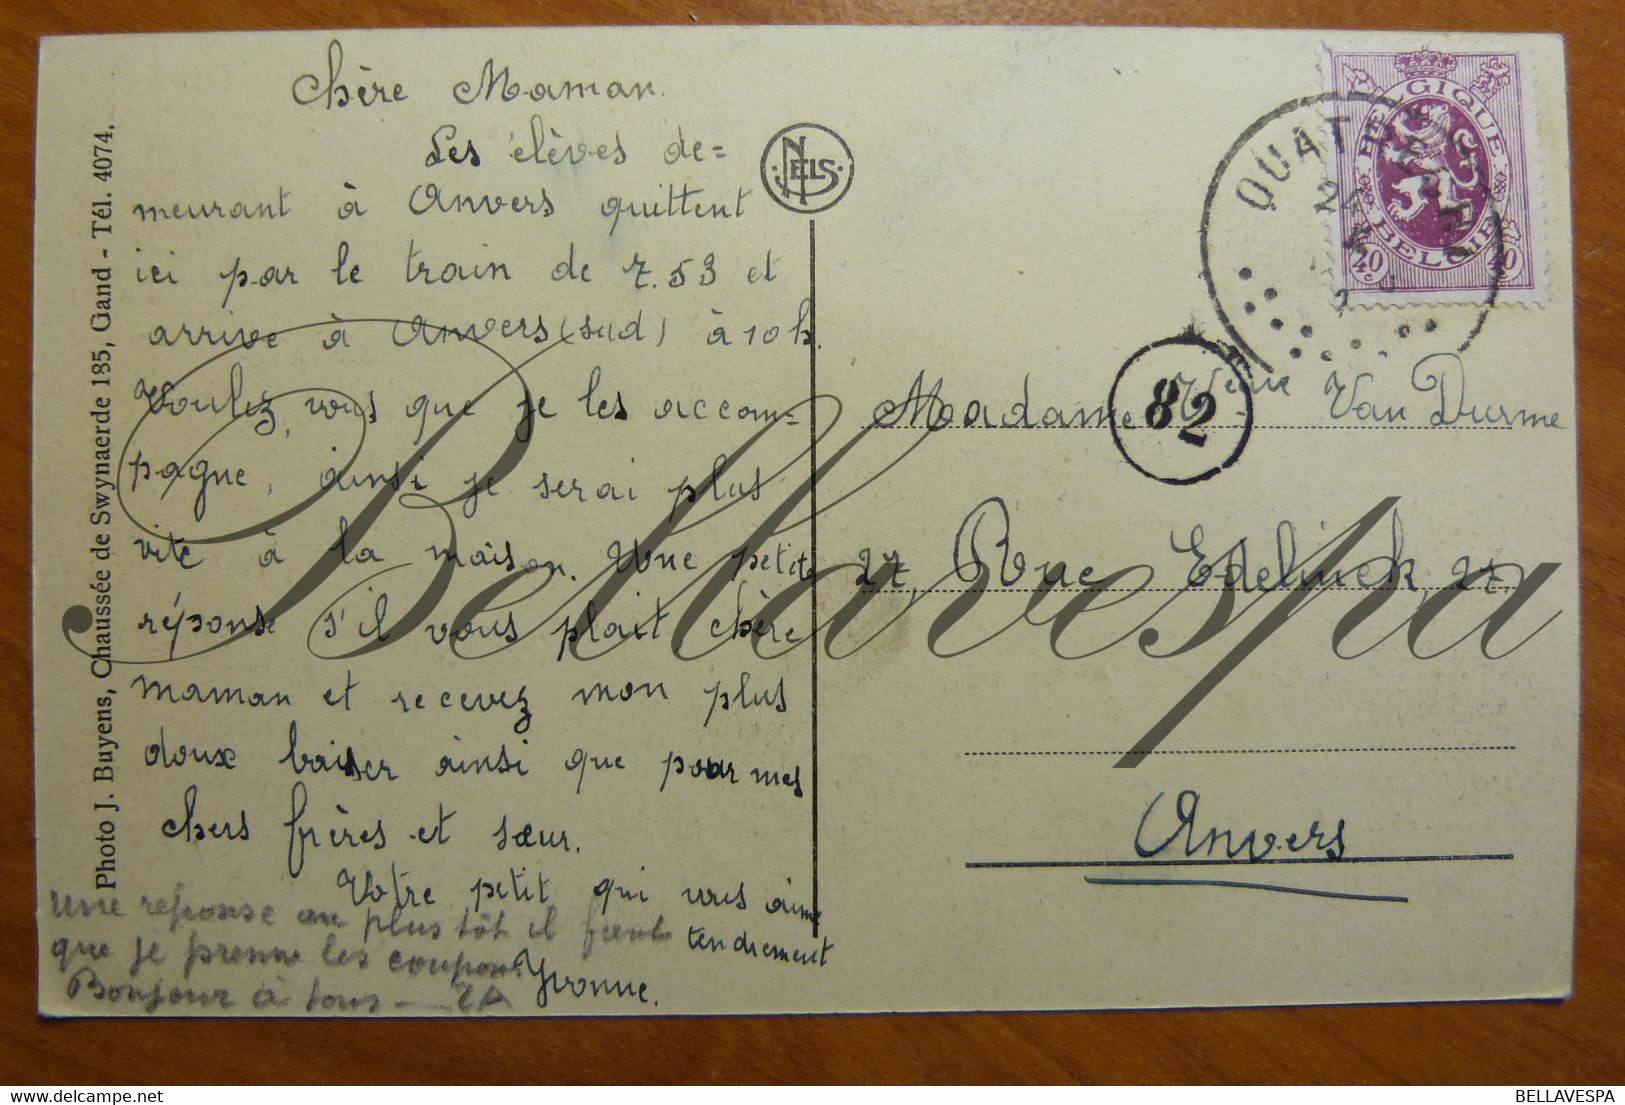 Chère Maman.
Les élèves de=
meurant à Anvers quittent
ici par le train de 7.53 et
arrive à Anvers (sud) à 10h.
Voulez, vous que je les accom=
pagne, ainsi je serai plus
vite à la maison. Une petite
réponse s'il vous plait chère
maman et recevez mon plus
doux baiser ainsi que pour mes
chers frères et sœur.
Votre petit qui vous aime
tendrement
Yvonne.
une reponse au plus tôt il faut
que je prenne les coupons
Bonjour à tous
Photo J. Buyens, Chaussée de Swynaerde 185, Gand - Tél. 4074.
NELS
BELGIQUE
BELGIE
40c 40c
QUAT
82
Madame Veuve Van Durme
27, Rue Edelinck, 27,
Anvers
Bellavespa
BELLAVESPA